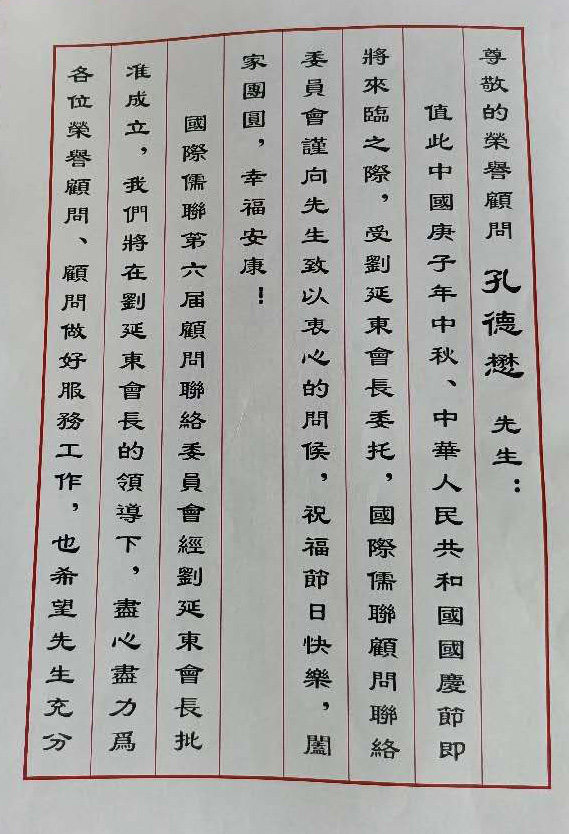 尊敬的榮譽顧問 孔德懋 先生：
值此中國庚子年中秋、中華人民共和國國慶節即
將來臨之際，受劉延東會長委托，國際儒聯顧問聯絡
委員會謹向先生致以衷心的問候，祝福節日快樂，闔
家團圓，幸福安康！
國際儒聯第六届顧問聯絡委員會經劉延東會長批
准成立，我們將在劉延東會長的領導下，盡心盡力爲
各位榮譽顧問、顧問做好服務工作，也希望先生充分